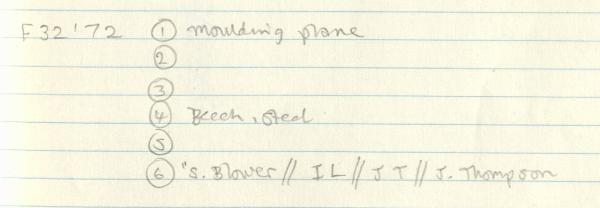 F32'72 ① moulding plane
②
③
④ Beech, steel.
⑤
⑥ "S. Blower // I L // J T // J. Thompson